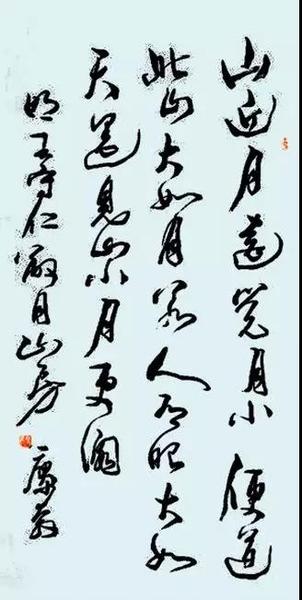 山近月遠覺月小便道
此山大如月若人有眼大如
天還見山小月更闊
明王守仁蔽月山房 康